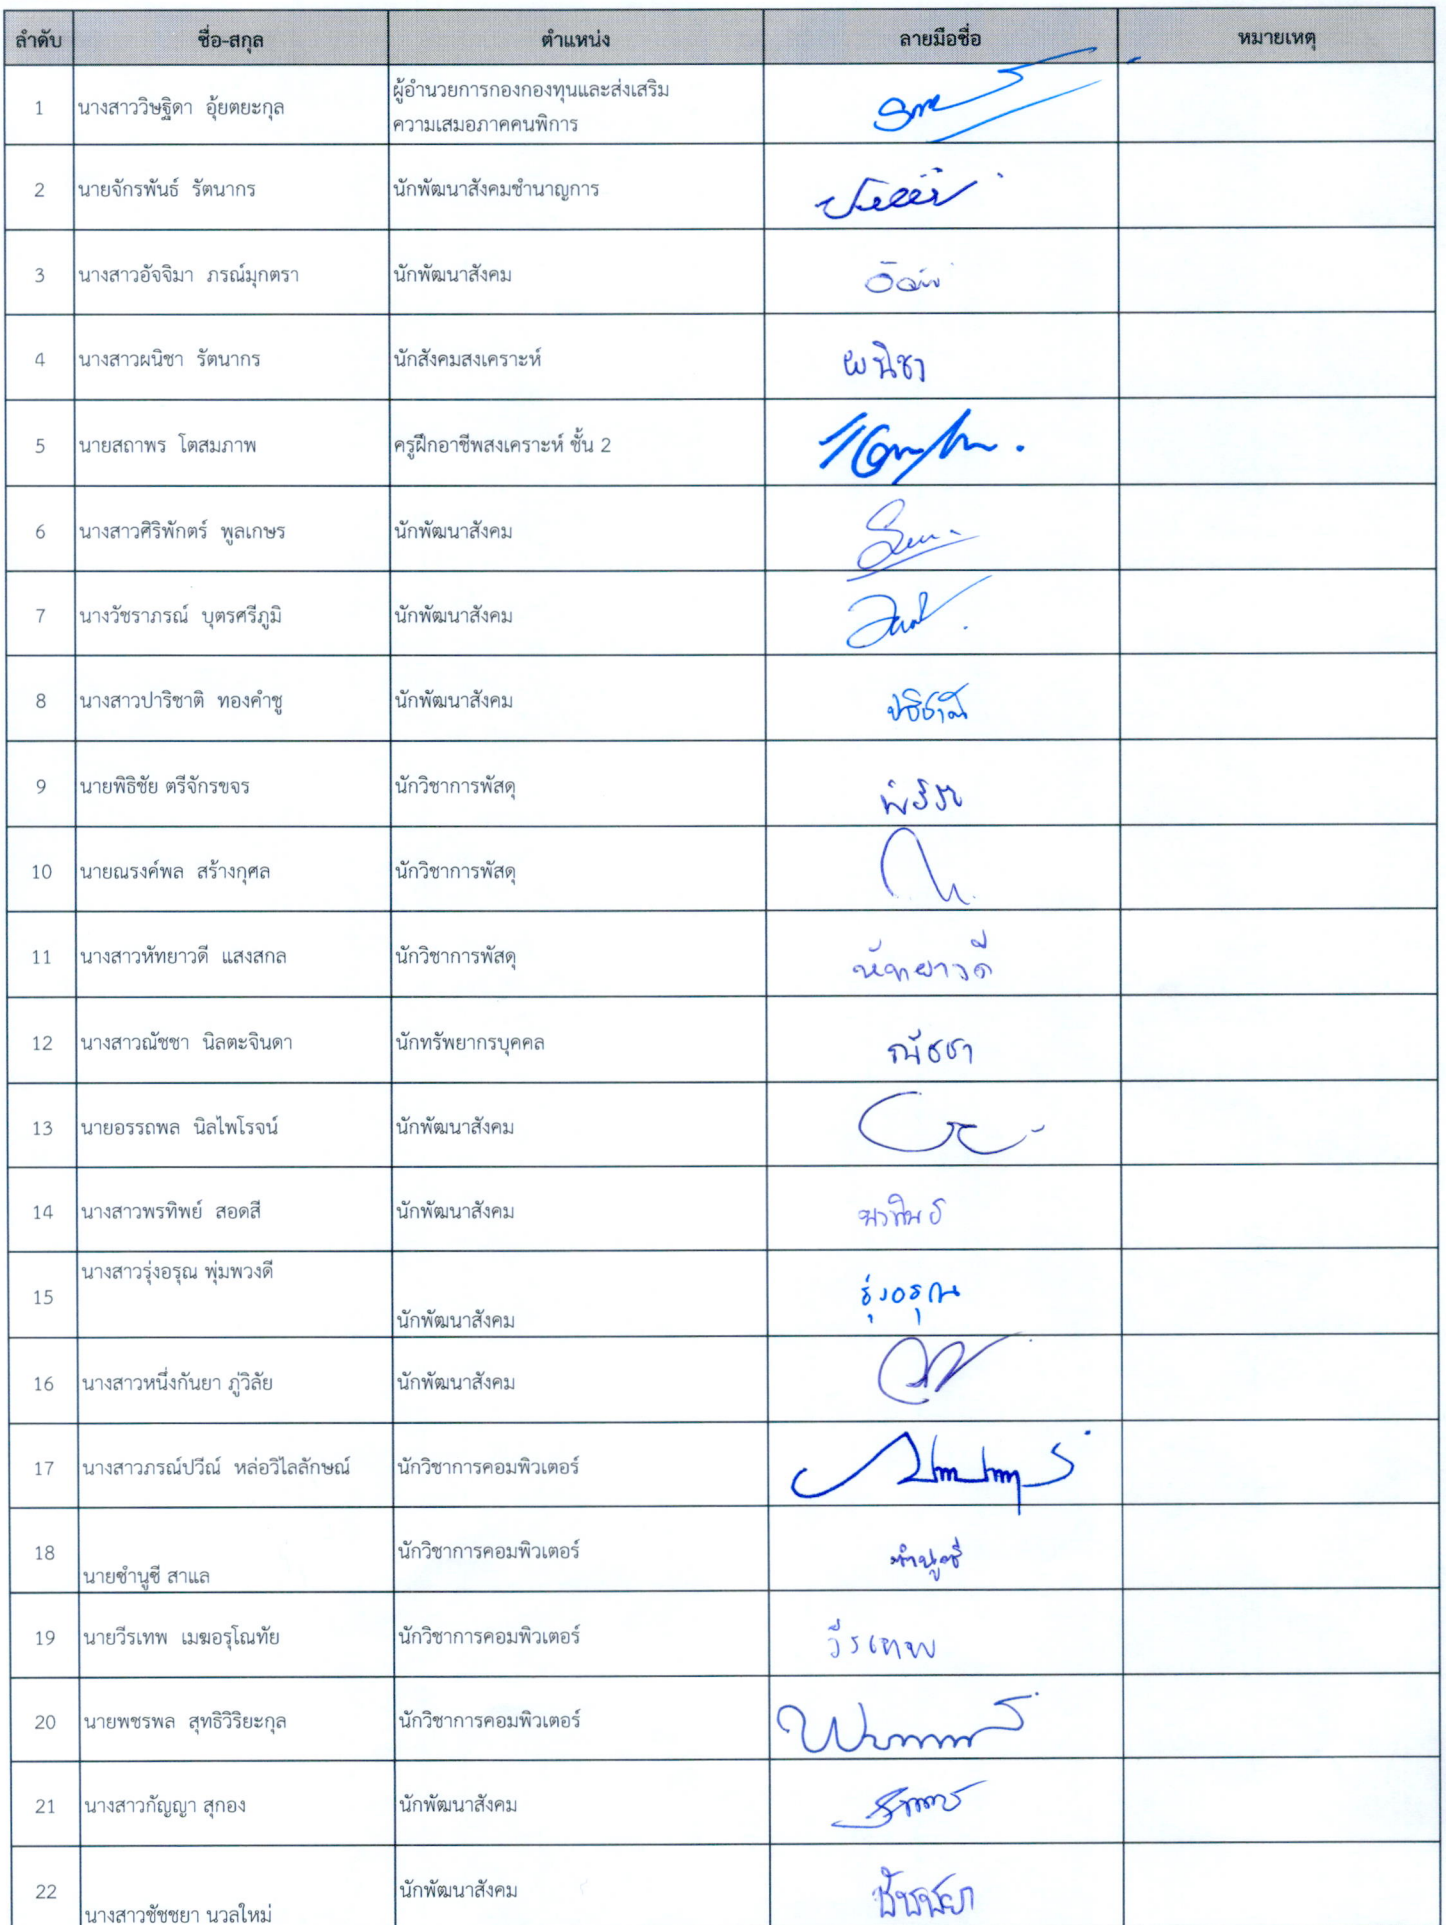 ลำดับ ชื่อ-สกุล ตำแหน่ง ลายมือชื่อ หมายเหตุ
1 นางสาววิษฐิดา อุ้ยตยะกุล ผู้อำนวยการกองกองทุนและส่งเสริม
ความเสมอภาคคนพิการ
2 นายจักรพันธ์ รัตนากร นักพัฒนาสังคมชำนาญการ
3 นางสาวอัจจิมา ภรณ์มุกตรา นักพัฒนาสังคม
4 นางสาวผนิชา รัตนากร นักสังคมสงเคราะห์ ผนิชา
5 นายสถาพร โตสมภาพ ครูฝึกอาชีพสงเคราะห์ ชั้น 2
6 นางสาวศิริพักตร์ พูลเกษร นักพัฒนาสังคม
7 นางวัชราภรณ์ บุตรศรีภูมิ นักพัฒนาสังคม
8 นางสาวปาริชาติ ทองคำชู นักพัฒนาสังคม ปาริชาติ
9 นายพิธิชัย ตรีจักรขจร นักวิชาการพัสดุ
10 นายณรงค์พล สร้างกุศล นักวิชาการพัสดุ
11 นางสาวหัทยาวดี แสงสกล นักวิชาการพัสดุ หัทยาวดี
12 นางสาวณัชชา นิลตะจินดา นักทรัพยากรบุคคล ณัชชา
13 นายอรรถพล นิลไพโรจน์ นักพัฒนาสังคม
14 นางสาวพรทิพย์ สอดสี นักพัฒนาสังคม พรทิพย์
15 นางสาวรุ่งอรุณ พุ่มพวงดี นักพัฒนาสังคม รุ่งอรุณ
16 นางสาวหนึ่งกันยา ภู่วิลัย นักพัฒนาสังคม
17 นางสาวภรณ์ปวีณ์ หล่อวิไลลักษณ์ นักวิชาการคอมพิวเตอร์
18 นายชำนูซี สาแล นักวิชาการคอมพิวเตอร์ ชำนูซี
19 นายวีรเทพ เมฆอรุโณทัย นักวิชาการคอมพิวเตอร์ วีรเทพ
20 นายพชรพล สุทธิวิริยะกุล นักวิชาการคอมพิวเตอร์
21 นางสาวกัญญา สุกอง นักพัฒนาสังคม
22 นางสาวชัชชยา นวลใหม่ นักพัฒนาสังคม ชัชชยา